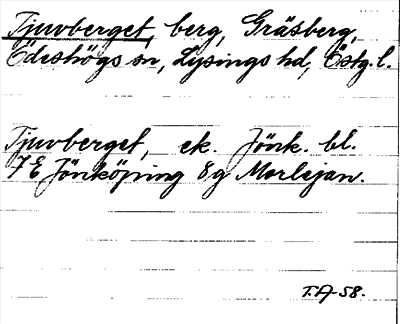 Tjuvberget, berg, Gräsberg,
Ödeshögs sn, Lysings hd, Östg.l.
Tjuvberget, ek. Jönk. bl.
7E Jönköping 8g Morlejan.
T.A-58.